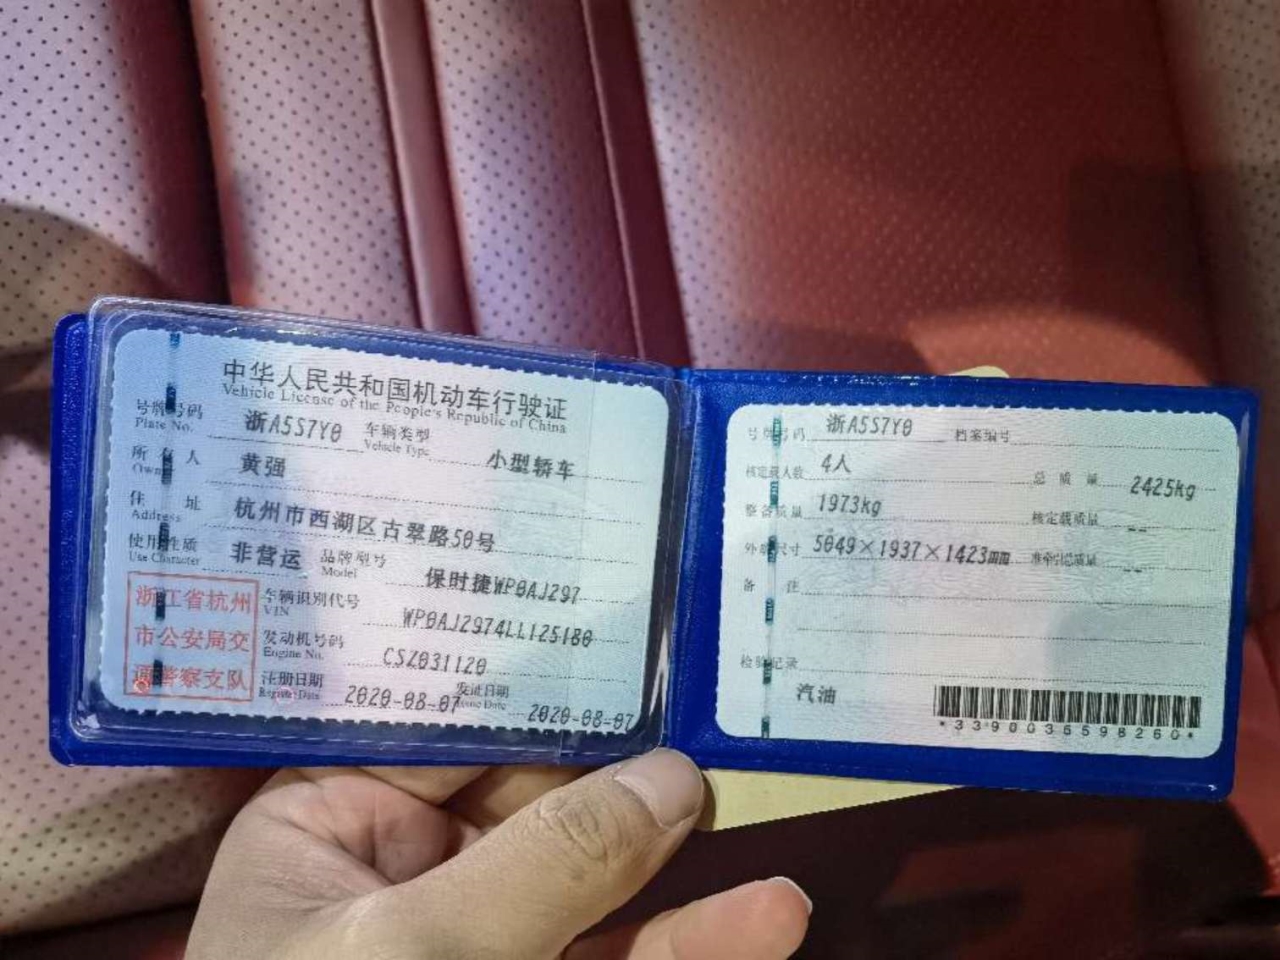 中华人民共和国机动车行驶证
Vehicle License of the People's Republic of China
号牌号码 浙A5S7Y0 车辆类型 小型轿车
Plate No. Vehicle Type
所有人 黄强
Owner
住址 杭州市西湖区古翠路50号
Address
使用性质 非营运 品牌型号 保时捷WP0AJ297
Use Character Model
浙江省杭州
市公安局交
通警察支队
车辆识别代号 WP0AJ2974LL125180
VIN
发动机号码 CSZ031120
Engine No.
注册日期 2020-08-07 发证日期 2020-08-07
Register Date Issue Date
号牌号码 浙A5S7Y0 档案编号
核定载人数 4人 总质量 2425kg
整备质量 1973kg 核定载质量 --
外廓尺寸 5049×1937×1423mm 准牵引总质量 --
备注
检验记录
汽油
*3390036598260*